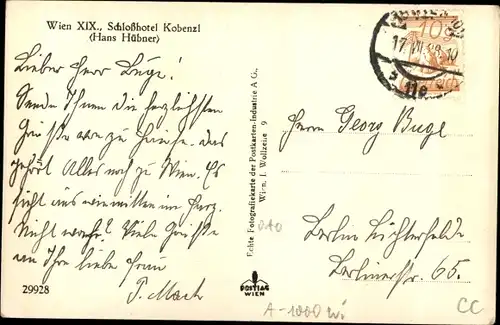 Wien XIX., Schloßhotel Kobenzl
(Hans Hübner)
Lieber Herr Buge!
Sende Ihnen die herzlichsten
Grüße von zu Hause. Das
gehört Alles noch zu Wien. Es
sieht aus wie mitten im Harz.
Nicht wahr? Viele Grüße
an Ihre liebe Frau
P. Mack
29928
Echte Fotografiekarte der Postkarten-Industrie A G.,
Wien, I. Wollzeile 9
POSTIAG
WIEN
10g
17 VII
11e
Herrn Georg Buge
Berlin Lichterfelde
Berlinerstr. 65.
A-1000 Wi
CC